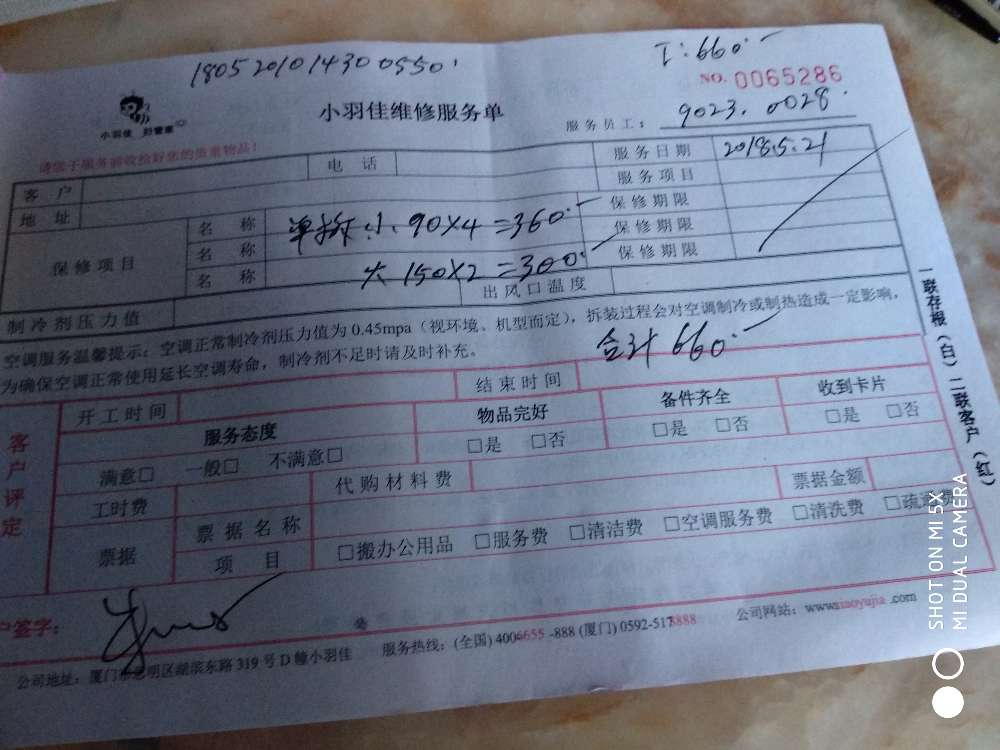 180520101430 0550.
I:660.
NO. 0065286
小羽佳 好管家
小羽佳维修服务单
服务员工: 9023. 0028.
请您于服务前收拾好您的贵重物品!
客户 电话 服务日期 2018.5.21
地址 服务项目
保修项目 名称 单拆:小. 90X4=360. 保修期限
名称 保修期限
名称 大 150X2=300. 保修期限
制冷剂压力值 出风口温度
空调服务温馨提示:空调正常制冷剂压力值为0.45mpa(视环境、机型而定),拆装过程会对空调制冷或制热造成一定影响,
为确保空调正常使用延长空调寿命,制冷剂不足时请及时补充。
合计 660.
客户评定
开工时间 结束时间
服务态度 物品完好 备件齐全 收到卡片
满意□ 一般□ 不满意□ □是 □否 □是 □否 □是 □否
工时费 代购材料费 票据金额
票据 票据名称
项目 □搬办公用品 □服务费 □清洁费 □空调服务费 □清洗费 □疏通费
户签字:
公司地址:厦门市思明区湖滨东路319号D幢小羽佳 服务热线:(全国)4006655-888(厦门)0592-5178888 公司网站:www.xiaoyujia.com
一联存根(白)二联客户(红)
SHOT ON MI 5X
MI DUAL CAMERA